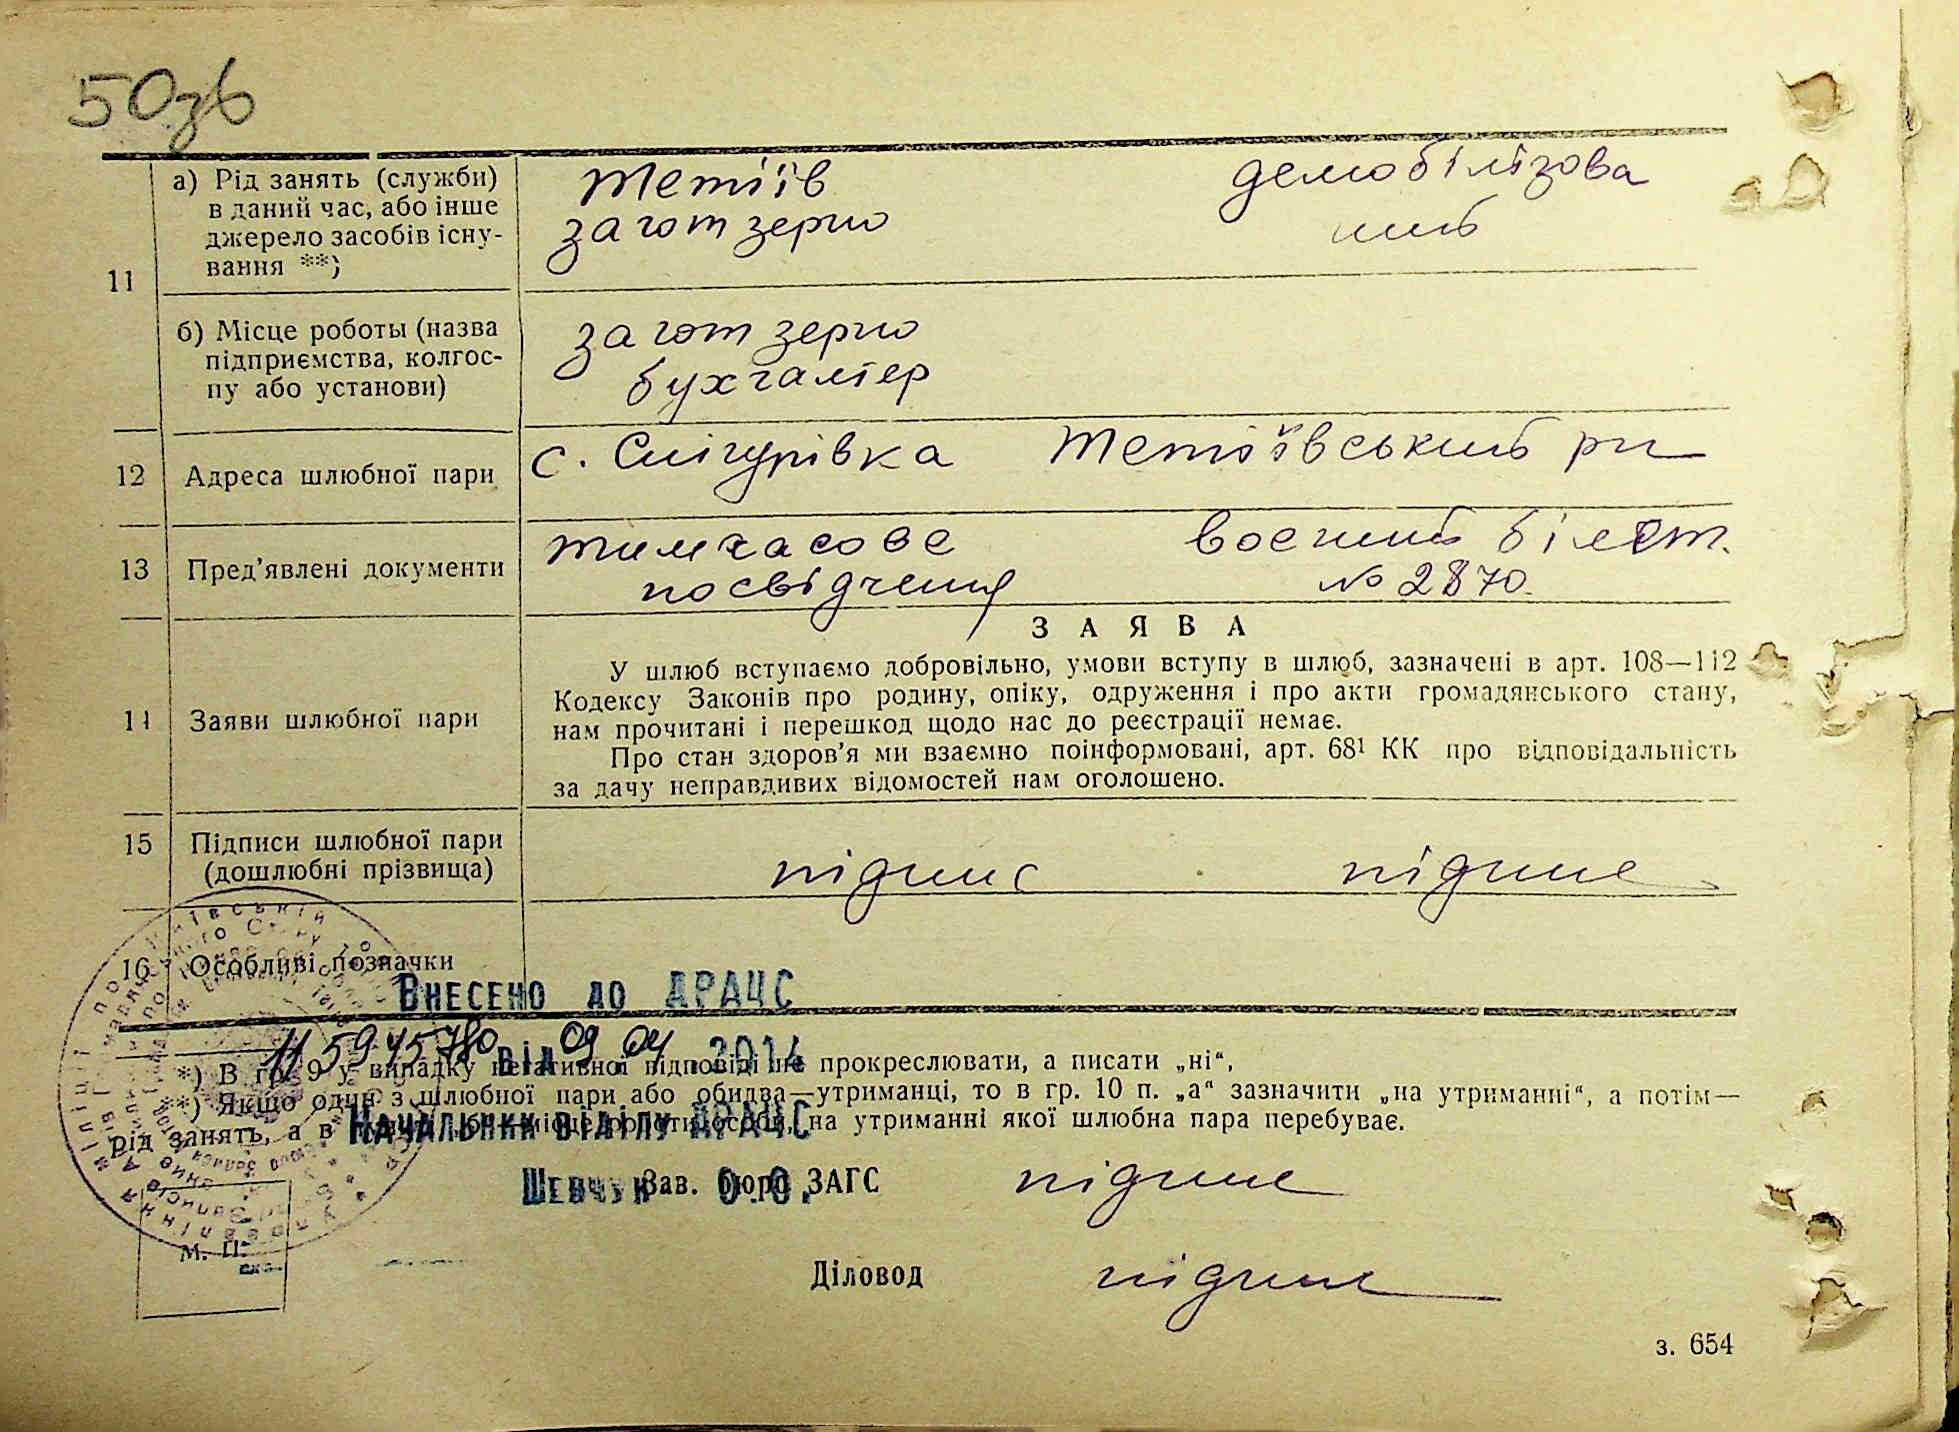 50зв
11
а) Рід занять (служби)
в даний час, або інше
джерело засобів існу-
вання **)
Тетіїв
заготзерно
демобілізова
ний
б) Місце роботы (назва
підприємства, колгос-
пу або установи)
заготзерно
бухгалтер
12
Адреса шлюбної пари
с. Снігурівка Тетіївський рн
13
Пред’явлені документи
тимчасове
посвідчення
воєнний білєт.
№ 2870.
14
Заяви шлюбної пари
ЗАЯВА
У шлюб вступаємо добровільно, умови вступу в шлюб, зазначені в арт. 108—112
Кодексу Законів про родину, опіку, одруження і про акти громадянського стану,
нам прочитані і перешкод щодо нас до реєстрації немає.
Про стан здоров’я ми взаємно поінформовані, арт. 68¹ КК про відповідальність
за дачу неправдивих відомостей нам оголошено.
15
Підписи шлюбної пари
(дошлюбні прізвища)
підпис
підпис
16
Особливі позначки
Внесено до ДРАЦС
від 09 04 .2014
*) В гр. 9 у випадку негативної підповіді не прокреслювати, а писати „ні“,
**) Якщо один з шлюбної пари або обидва—утриманці, то в гр. 10 п. „а“ зазначити „на утриманні“, а потім—
рід занять, а в на утриманні якої шлюбна пара перебуває.
Начальник відділу ДРАЦС
Шевчук О.О.
Зав. бюро ЗАГС
підпис
М. П.
Діловод
підпис
з. 654